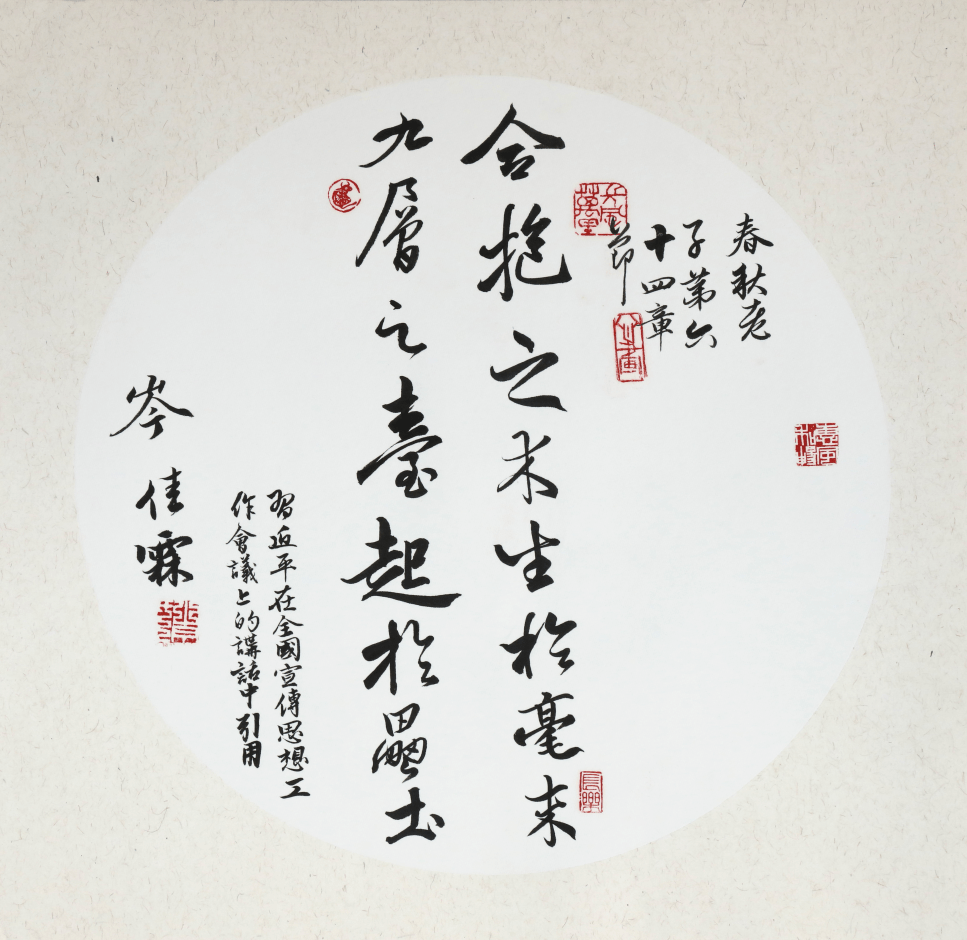 春秋老
子第六
十四章
節
長風萬里
合抱之木生於毫末
長樂
九層之臺起於壘土
習近平在全國宣傳思想工
作會議上的講話中引用
岑佳霖